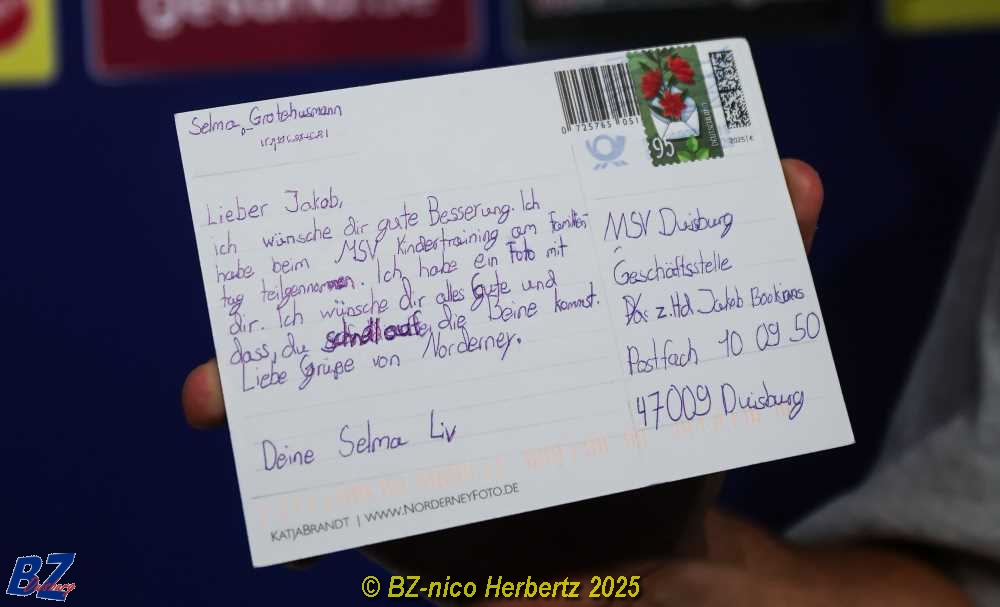 gesund.
Selma Grotehusmann
0 725765 051
95
Deutschland
2025 | €
Lieber Jakob,
ich wünsche dir gute Besserung. Ich
habe beim MSV Kindertraining am Familien-
tag teilgenommen. Ich habe ein Foto mit
dir. Ich wünsche dir alles Gute und
dass, du schnell auf die Beine kommst.
Liebe Grüße von Norderney.
Deine Selma Liv
MSV Duisburg
Geschäftsstelle
z.Hd. Jakob Bookjans
Postfach 10 09 50
47009 Duisburg
KATJABRANDT | WWW.NORDERNEYFOTO.DE
BZ
© BZ-nico Herbertz 2025